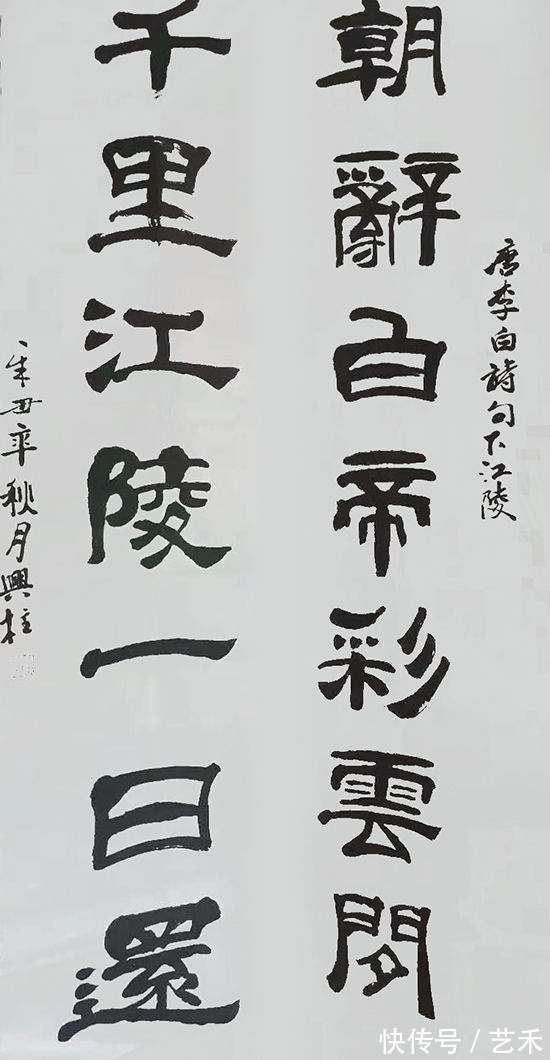 唐李白詩句下江陵
朝辭白帝彩雲間
千里江陵一日還
辛丑年秋月興柱
快传号 / 艺禾